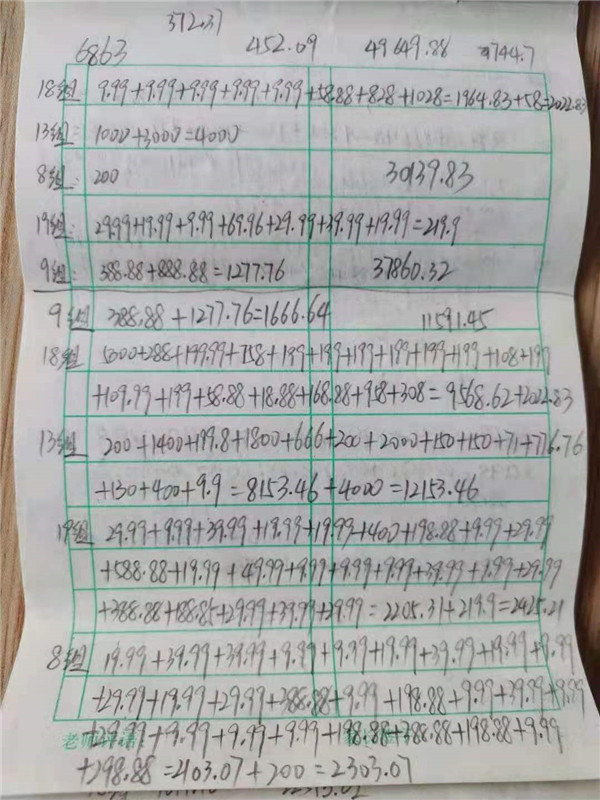 372.37
6863 452.09 49649.88 9744.7
18组 9.99+9.99+9.99+9.99+9.99+58.88+828+1028=1964.83+58=2022.83
13组: 1000+3000=4000
8组: 200 30139.83
19组: 29.99+19.99+9.99+69.96+29.99+39.99+19.99=219.9
9组: 388.88+888.88=1277.76 37860.32
9组 388.88+1277.76=1666.64 11591.45
18组 5300+288+199.99+758+199+199+199+199+199+199+108+199
+109.99+199+58.88+18.88+168.88+958+308=9568.62+2022.83
13组 200+1400+199.8+1800+666+200+2000+150+150+71+776.76
+130+400+9.9=8153.46+4000=12153.46
19组 29.99+9.99+39.99+19.99+19.99+400+198.88+9.99+29.99
+588.88+19.99+49.99+9.99+9.99+9.99+39.99+9.99+29.99
+388.88+188.88+29.99+39.99+29.99=2205.31+219.9=2425.21
8组 19.99+39.99+39.99+9.99+9.99+19.99+39.99+19.99+9.99
+29.99+19.99+29.99+388.88+9.99+198.88+9.99+39.99+9.99
+29.99+9.99+9.99+9.99+198.88+388.88+198.88+9.99
+298.88=2103.07+200=2303.07